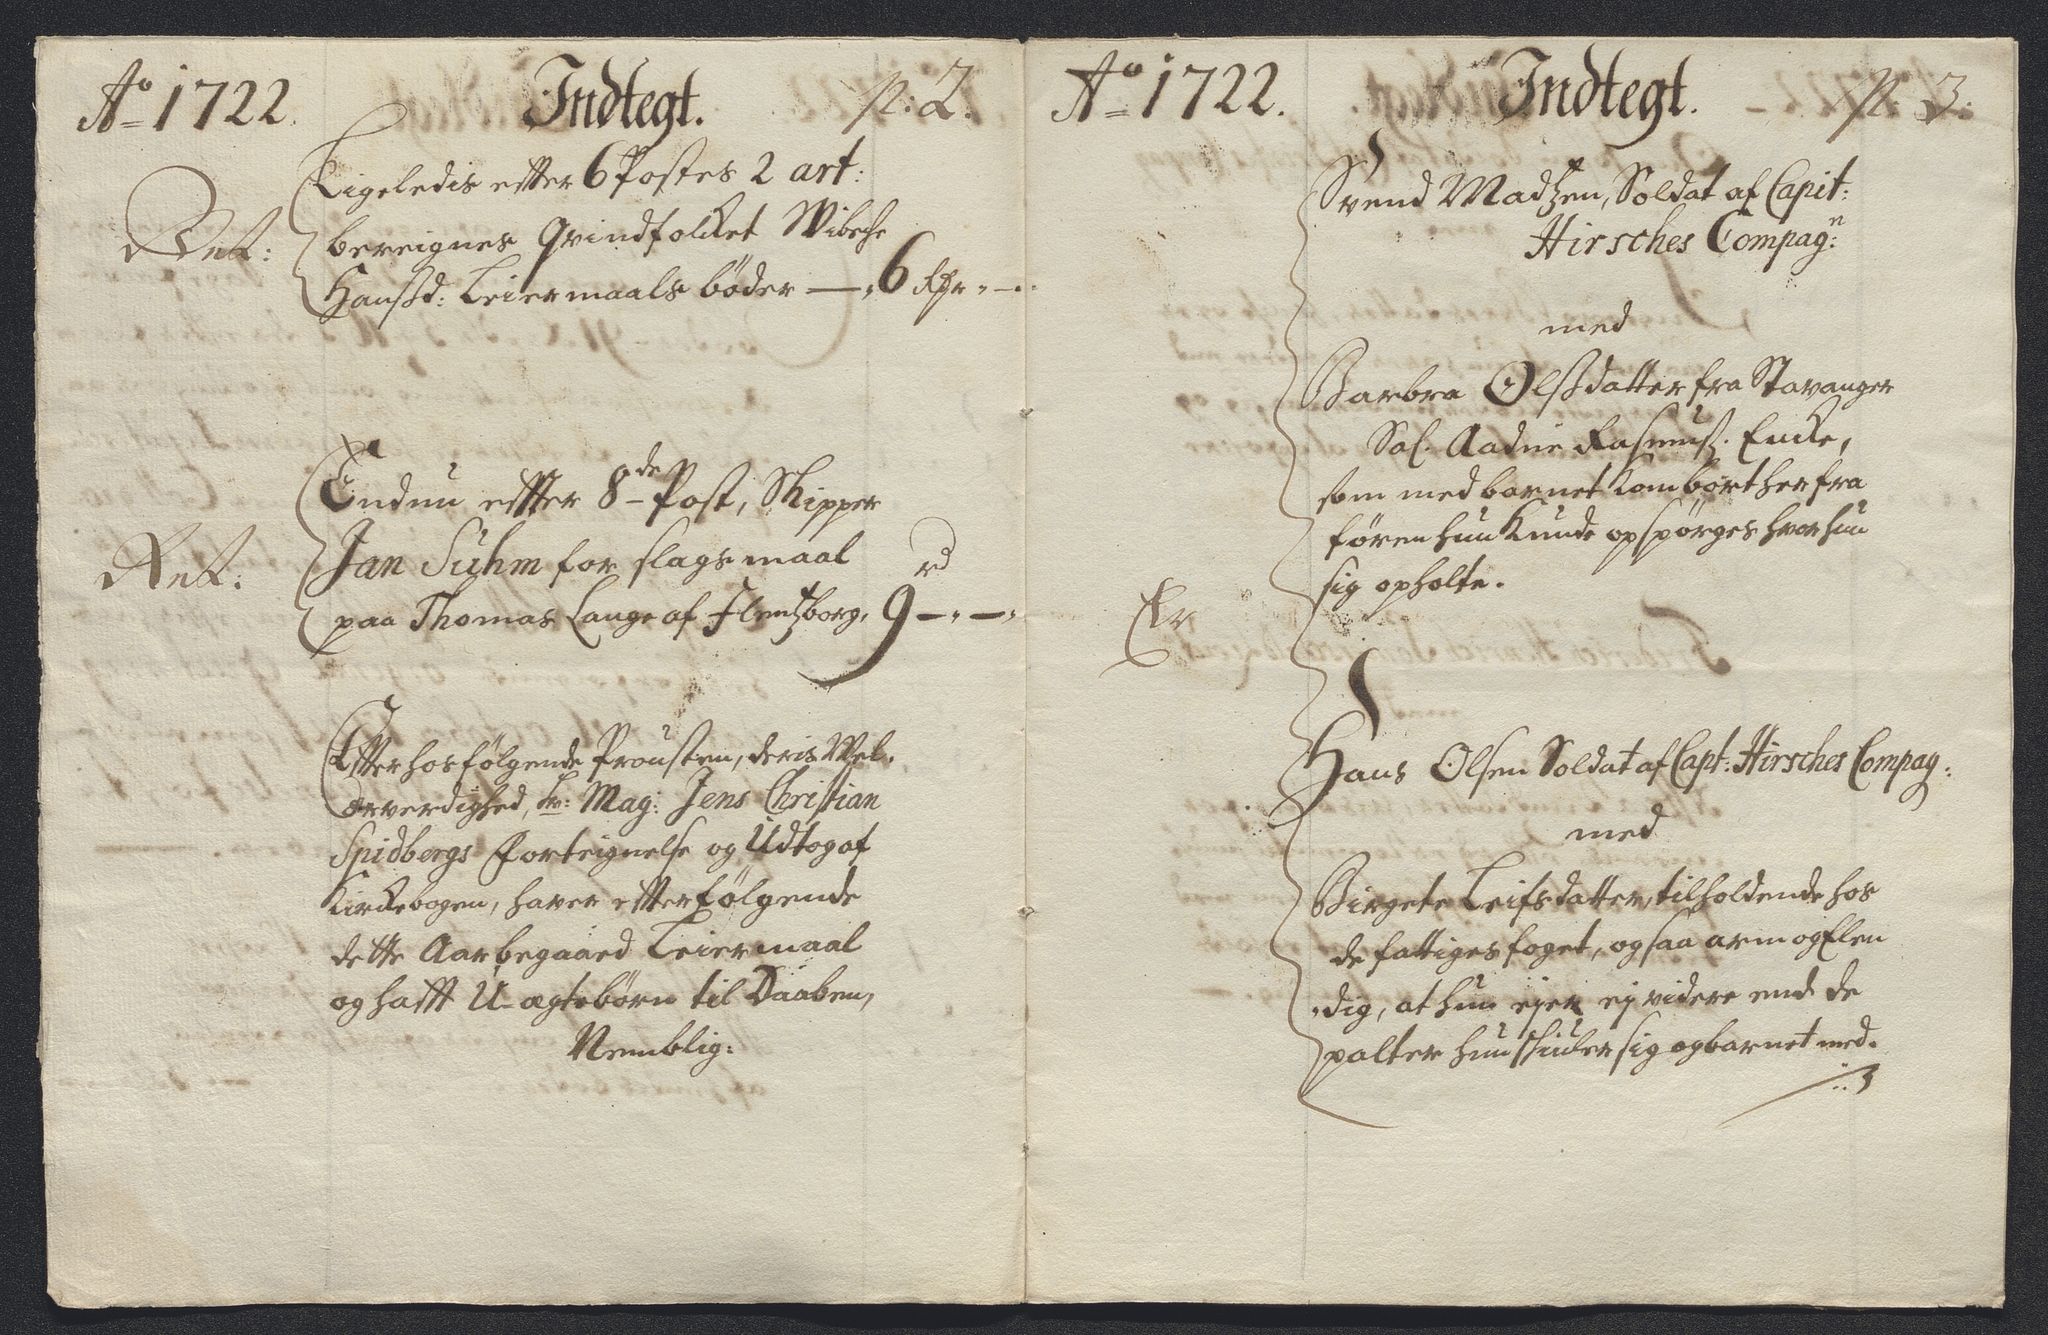 Ao 1722. Indtegt. p: 2.
Ligeledis effter 6 Postes 2 art:
bereignes Qvindfolcket Wibeche
Hanssd: Leiermaals bøder — 6 Rdr - -
Endnu effter 8de Post, Skipper
Jan Suhm for slagsmaal
paa Thomas Lange af Flensborg, 9 rd - -
Effter hosfølgende Prousten, deris Wel-
ærverdighed, Hr: Mag: Jens Christian
Spidbergs Forteignelse og Udtog af
Kirckebogen, haver effterfølgende
dette Aar begaaed Leiermaal
og hafft U-ægtebørn til Daaben,
Nemblig:
Ao 1722. Indtegt. p: 3.
Svend Madtzen, Soldat af Capit:
Hirsches Compag:n
med
Barbra Olssdatter fra Stavanger
Sal. Aadne Rasmuss. Encke,
som med barnet kom bort herfra
føren hun kunde opspørges hvor hun
sig opholte.
Hans Olsen Soldat af Capt: Hirsches Compag:
med
Birgete Leifsdatter, tilholdende hos
de fattiges foget, og saa arm og Elen
dig, at hun ejer ej videre end de
palter hun skiuler sig og barnet med.